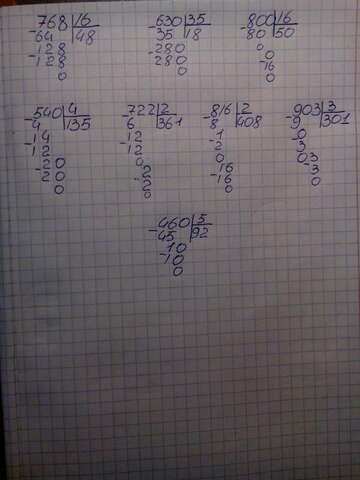 768|16  -630|35  800|16
-64 |48  35 |18  80 |50
128  -280  0
-128  280  0
0  0  -16
0
-540|4  -722|2  -816|2  -903|3
4 |135  6 |361  8 |408  9 |301
-14  12  1  0
12  -12  -2  3
-20  0  0  03
-20  2  -16  -3
0  -2  -16  0
0  0
-460|5
45 |92
10
-10
0